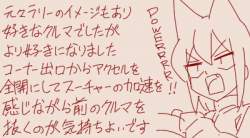 元々ラリーのイメージもあり
好きなクルマでしたが
より好きになりました
コーナー出口からアクセルを
全開にしてスーチャーの加速を!!
感じながら前のクルマを
抜くのが気持ちよいです